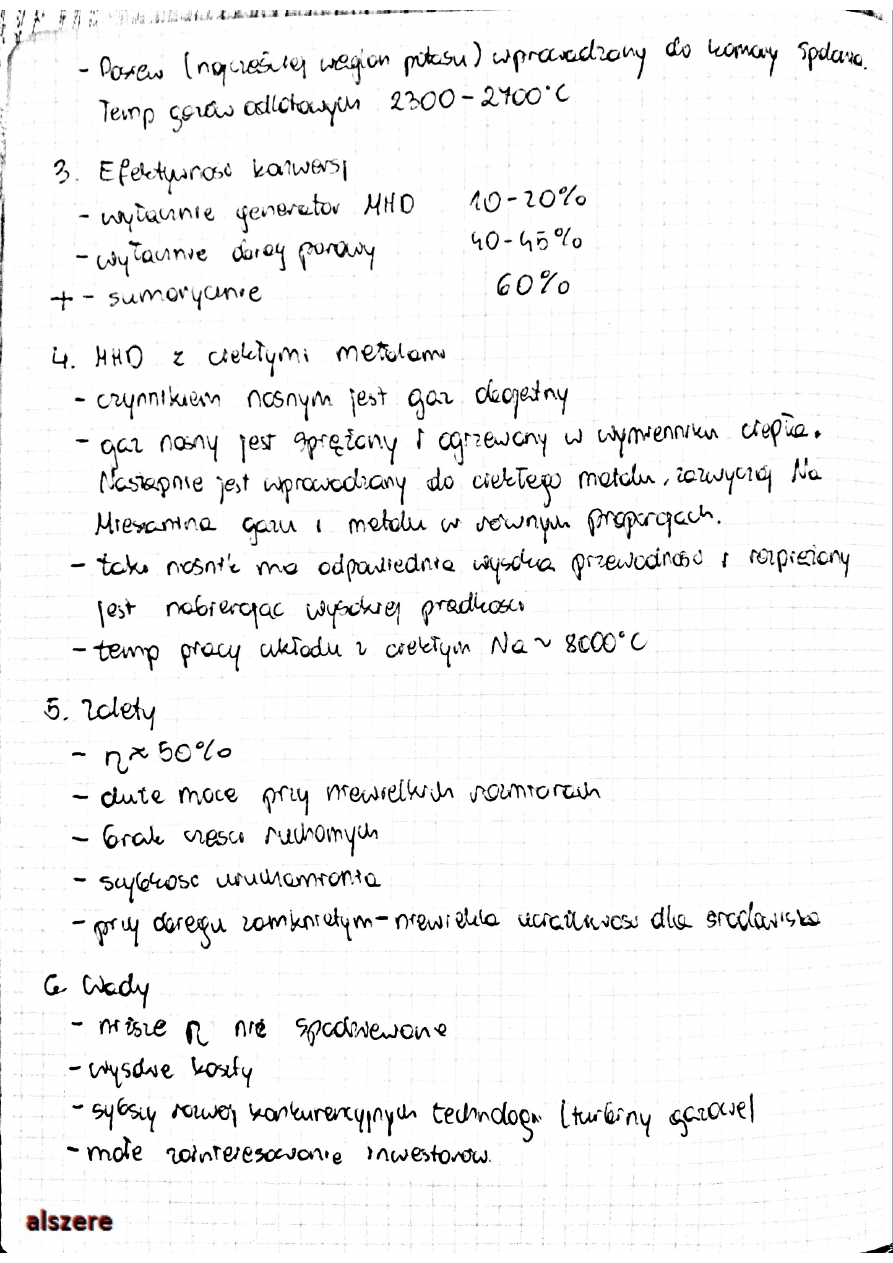 - Posew (najcześciej węglan potasu) wprowadzany do komory spalania.
Temp gazów odlotowych 2300-2700°C
3. Efektywnosc konwersji
- wyłacznie generator MHD 10-20%
- wyłacznie obieg parowy 40-45%
+ - sumarycznie 60%
4. MHD z ciekłymi metalami
- czynnikiem nosnym jest gaz obojetny
- gaz nosny jest sprężany i ogrzewany w wymienniku ciepła.
Nastepnie jest wprowadzany do ciekłego metalu, zazwyczaj Na
Mieszanina gazu i metalu w równym proporcjach.
- taki nośnik ma odpowiednia wysoka przewodnosc i rozpreżony
jest nabierajac wysokiej predkosci
- temp pracy układu z ciekłym Na ~ 8000°C
5. Zalety
- η ≈ 50%
- duże moce przy niewielkich rozmiarach
- brak czesci ruchomych
- szybkosc uruchamiania
- przy obiegu zamknietym - niewielka uciażliwosc dla srodowiska
6. Wady
- niższe η niż spodziewane
- wysokie koszty
- sybszy rozwój konkurencyjnych technologi (turbiny gazowe)
- małe zainteresowanie inwestorów.
alszere